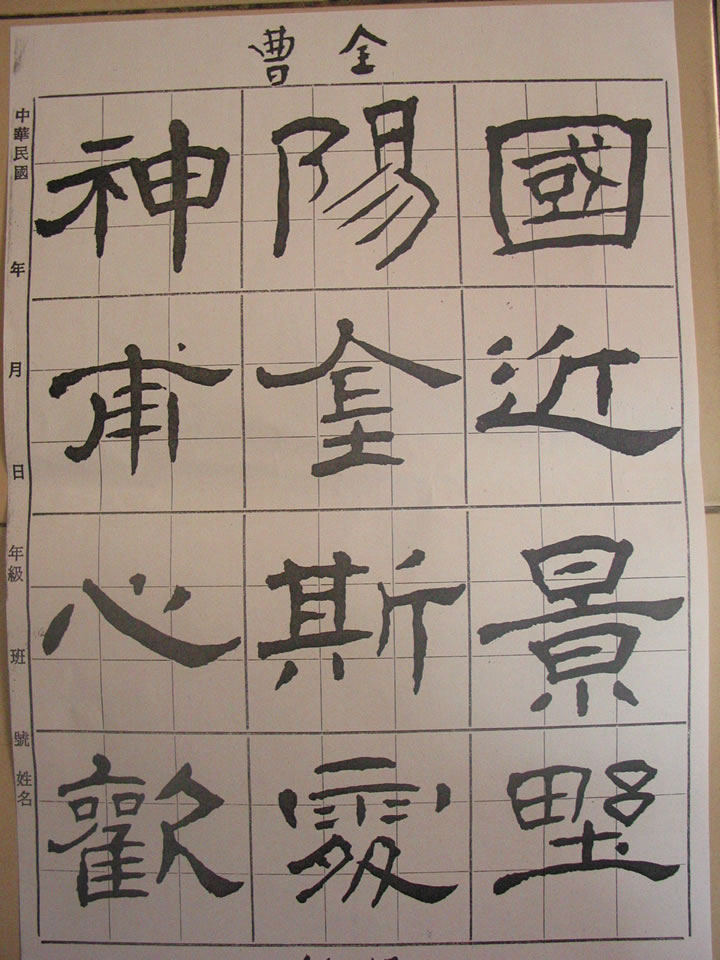 曹全
國近景野
陽斯
神甫心歡
中華民國 年 月 日 年級 班 號 姓名